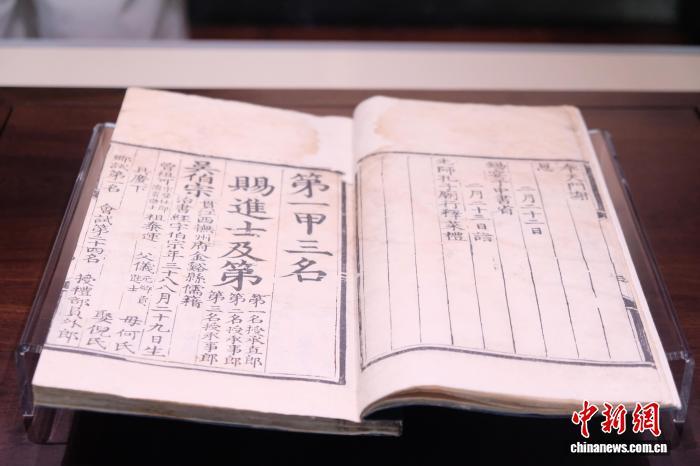 奉天門謝
恩
二月二十二日
錫宴于中書省
二月二十三日詣
先師孔子廟行釋菜禮
第一甲三名
賜進士及第
第一名授承直郎
第二名授承事郎
第三名授承事郎
吳伯宗
貫江西撫州府金谿縣儒籍
治書經字伯宗年三十八八月二十九日生
曾祖 祖泰運 母何氏
具慶下 父儀 元鄉貢進士 娶倪氏
鄉試第一名 會試第二十四名 授禮部員外郎
中新網
chinanews.com